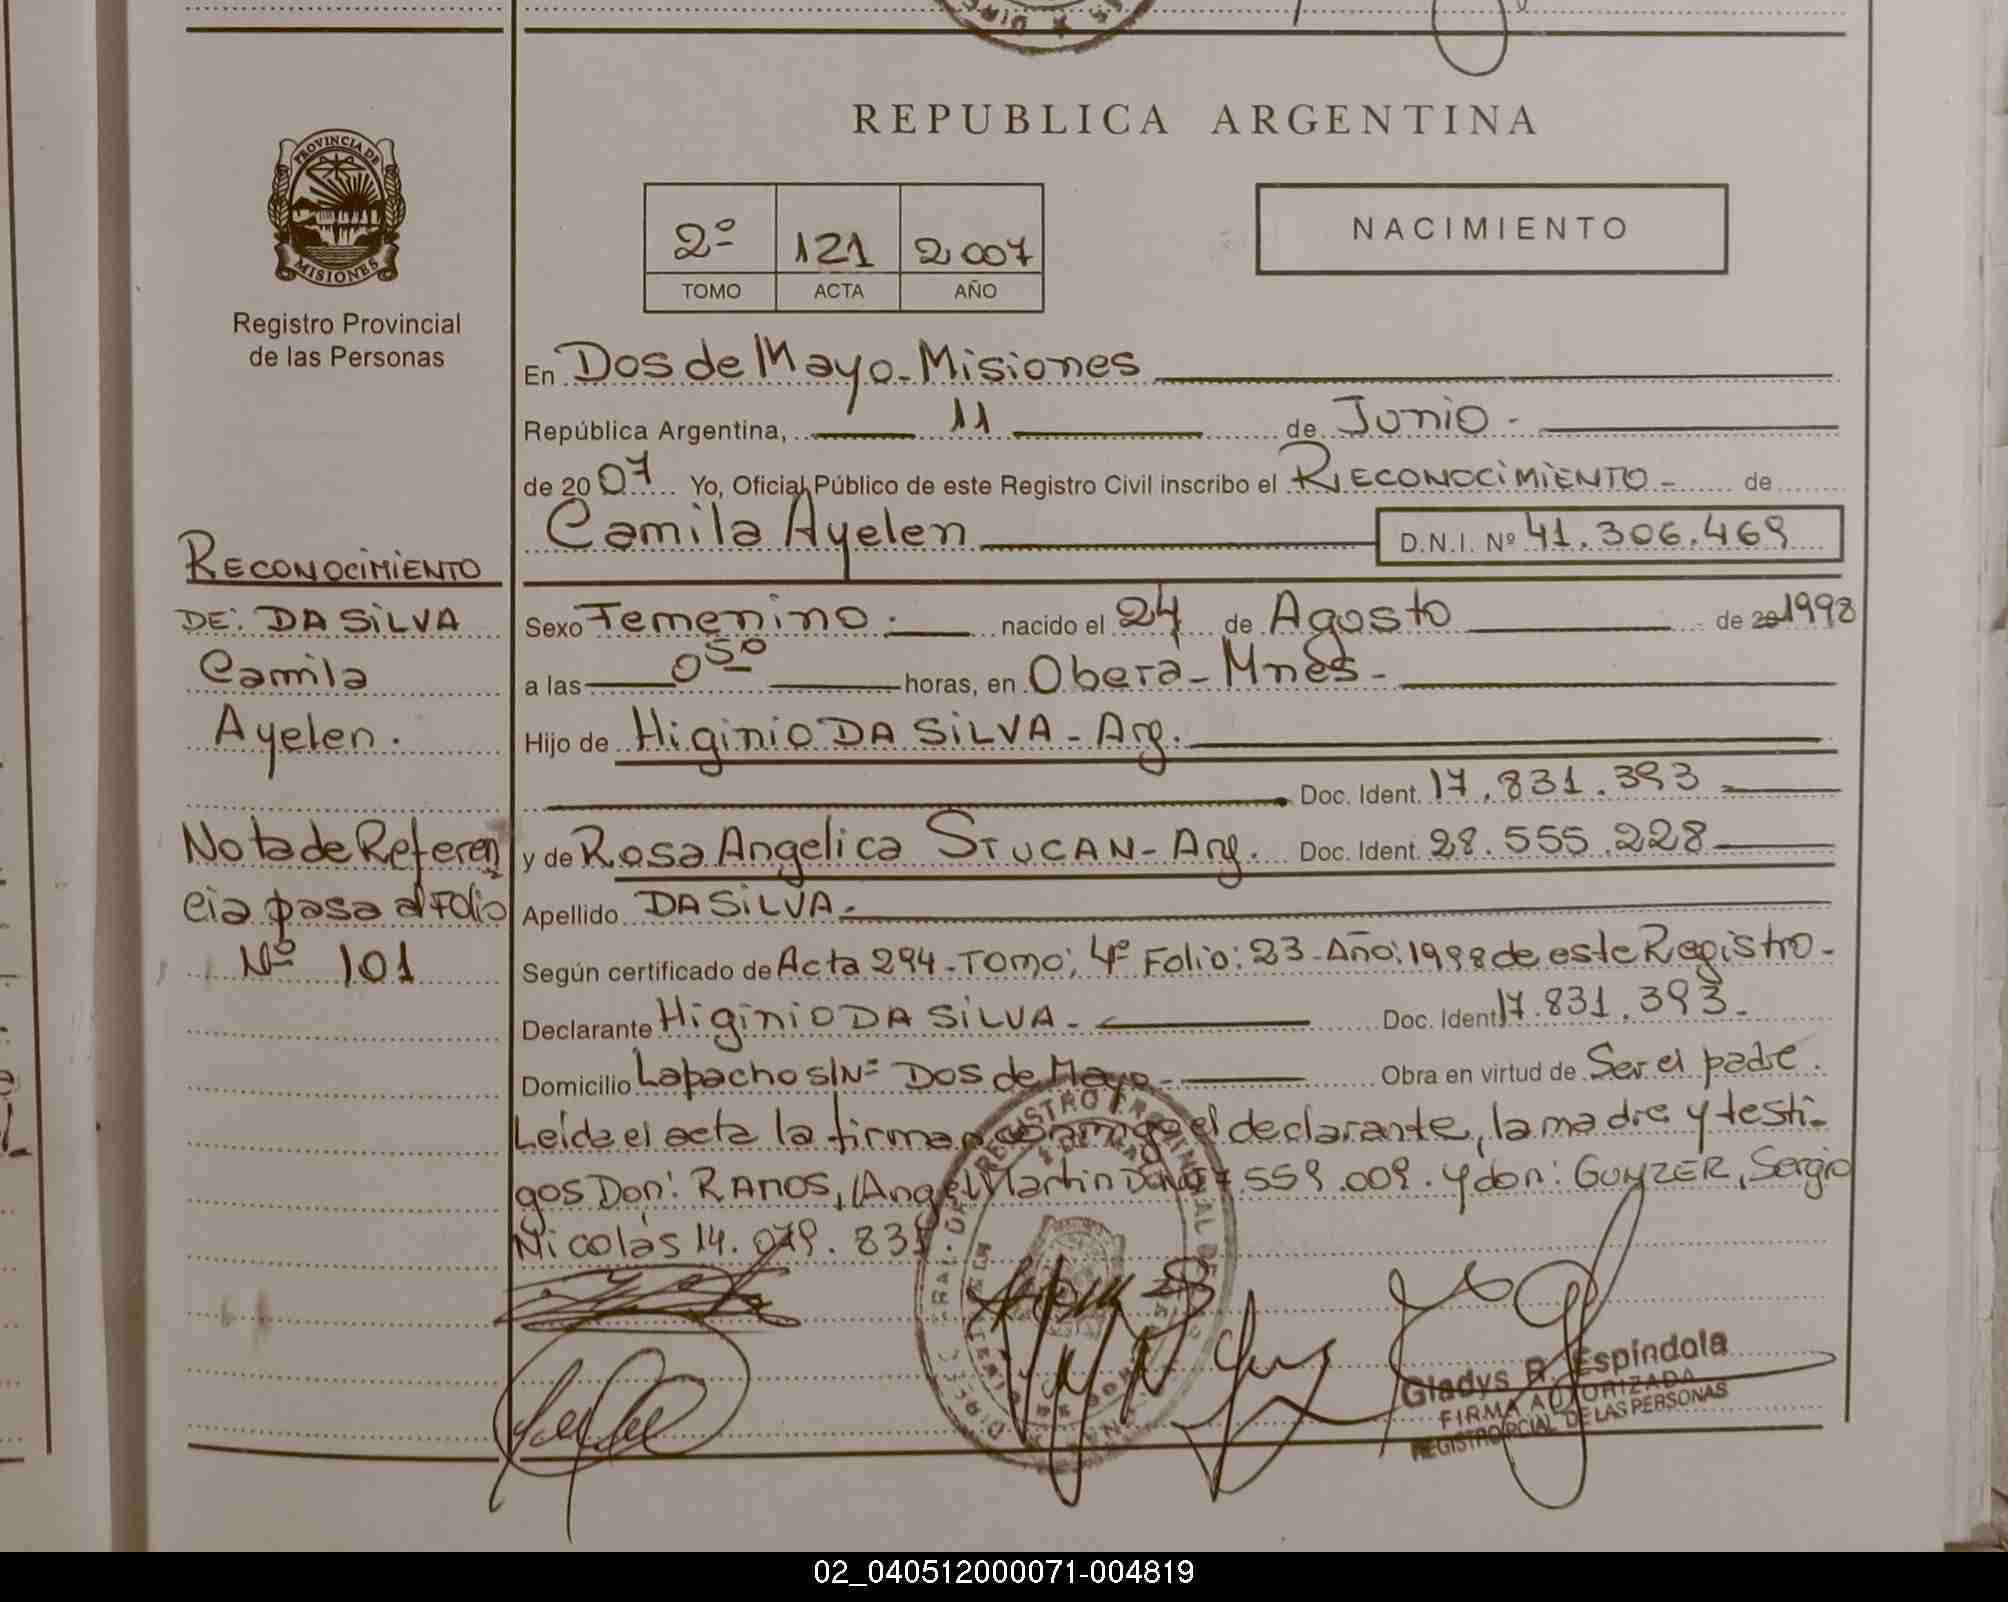 REPUBLICA ARGENTINA
PROVINCIA DE
MISIONES
Registro Provincial
de las Personas
2º 121 2007
TOMO ACTA AÑO
NACIMIENTO
En Dos de Mayo - Misiones
República Argentina, 11 de Junio -
de 2007 Yo, Oficial Público de este Registro Civil inscribo el RECONOCIMIENTO - de
Camila Ayelen D.N.I. Nº 41.306.469
RECONOCIMIENTO
DE: DA SILVA
Camila
Ayelen.
Nota de Referen
cia pasa al Folio
Nº 101
Sexo Femenino. nacido el 24 de Agosto de 20 1998
a las 050 horas, en Oberá - Mnes -
Hijo de Higinio DA SILVA - Arg.
Doc. Ident. 17.831.393
y de Rosa Angelica STUCAN - Arg. Doc. Ident. 28.555.228
Apellido DA SILVA -
Según certificado de Acta 294 - Tomo: 4º Folio: 23 - Año: 1998 de este Registro -
Declarante Higinio DA SILVA - Doc. Ident 17.831.393 -
Domicilio Lapacho S/Nº Dos de Mayo - Obra en virtud de Ser el padre.
Leída el acta la firman conmigo el declarante, la madre y testi-
gos Don: RAMOS, Angel Martin 559.009. y don: Sergio
Nicolás 14.079.
Gladys R. Espindola
FIRMA AUTORIZADA
REGISTRO PCIAL. DE LAS PERSONAS
02_040512000071-004819